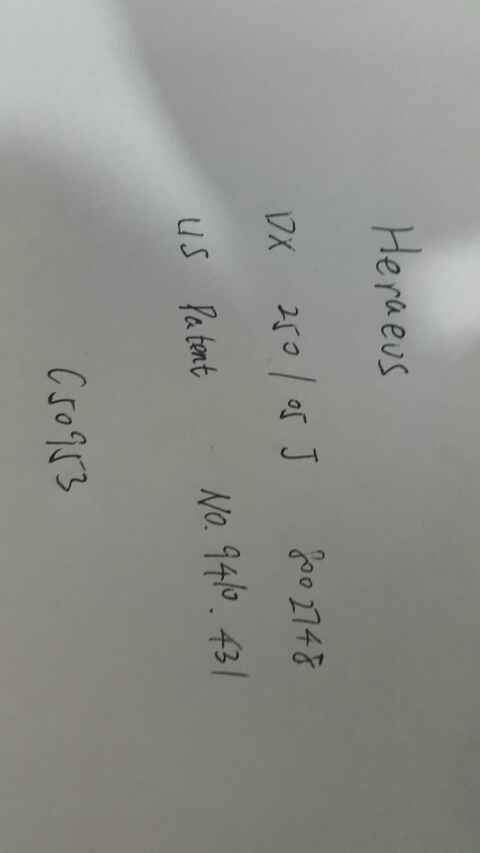 Heraeus
DX 250/05 J 8002748
US Patent No. 9410.431
C50953